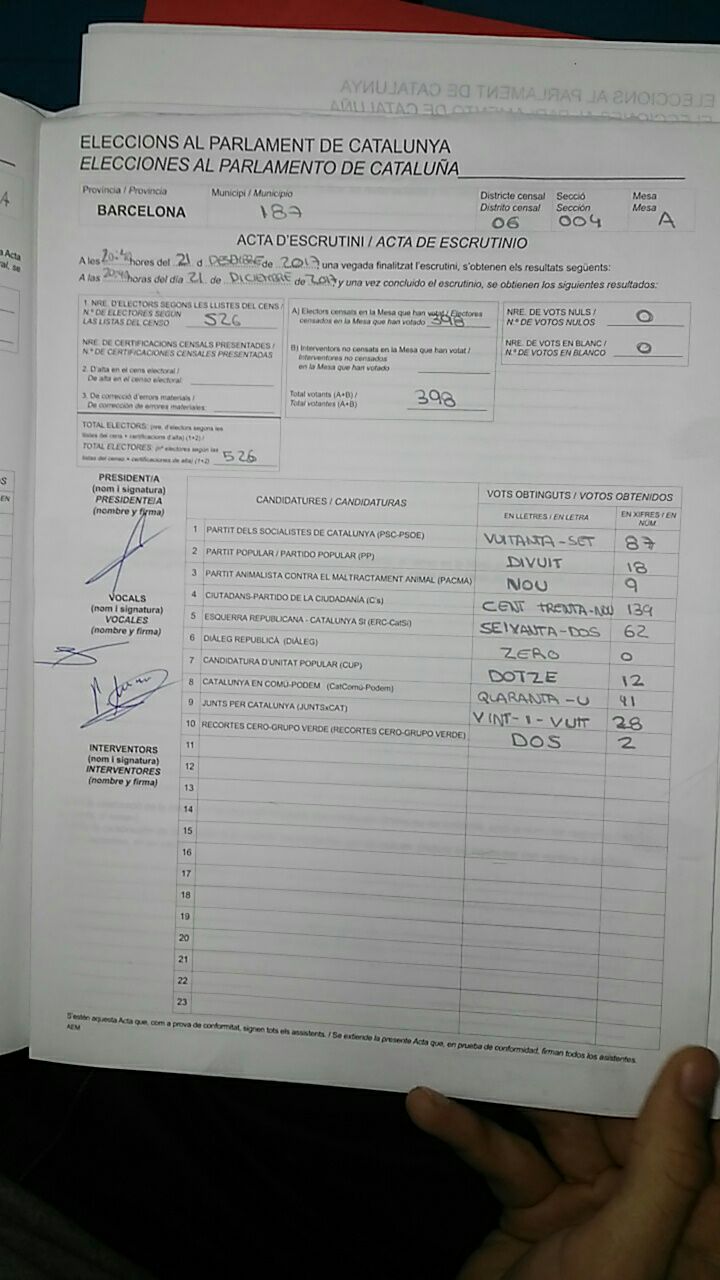 ELECCIONS AL PARLAMENT DE CATALUNYA
ELECCIONS AL PARLAMENT DE CATALUNYA
ELECCIONES AL PARLAMENTO DE CATALUÑA
Província / Provincia
BARCELONA
Municipi / Municipio
187
Districte censal
Distrito censal
06
Secció
Sección
004
Mesa
Mesa
A
ACTA D'ESCRUTINI / ACTA DE ESCRUTINIO
A les hores del 21 d de 2017, una vegada finalitzat l'escrutini, s'obtenen els resultats següents:
A las horas del día 21 de DICIEMBRE de 2017 y una vez concluido el escrutinio, se obtienen los siguientes resultados:
1. NRE. D'ELECTORS SEGONS LES LLISTES DEL CENS /
N.º DE ELECTORES SEGÚN
LAS LISTAS DEL CENSO
526
NRE. DE CERTIFICACIONS CENSALS PRESENTADES /
N.º DE CERTIFICACIONES CENSALES PRESENTADAS
2. D'alta en el cens electoral /
De alta en el censo electoral:
3. De correcció d'errors materials /
De corrección de errores materiales:
TOTAL ELECTORS: (nre. d'electors segons les
llistes del cens + certificacions d'alta) (1+2) /
TOTAL ELECTORES: (nº electores según las
listas del censo + certificaciones de alta) (1+2)
526
A) Electors censats en la Mesa que han votat / Electores
censados en la Mesa que han votado
398
B) Interventors no censats en la Mesa que han votat /
Interventores no censados
en la Mesa que han votado
Total votants (A+B) /
Total votantes (A+B)
398
NRE. DE VOTS NULS /
N.º DE VOTOS NULOS
0
NRE. DE VOTS EN BLANC /
N.º DE VOTOS EN BLANCO
0
PRESIDENT/A
(nom i signatura)
PRESIDENTE/A
(nombre y firma)
VOCALS
(nom i signatura)
VOCALES
(nombre y firma)
INTERVENTORS
(nom i signatura)
INTERVENTORES
(nombre y firma)
CANDIDATURES / CANDIDATURAS
VOTS OBTINGUTS / VOTOS OBTENIDOS
EN LLETRES / EN LETRA
EN XIFRES / EN NÚM.
1 PARTIT DELS SOCIALISTES DE CATALUNYA (PSC-PSOE) VUITANTA-SET 87
2 PARTIT POPULAR / PARTIDO POPULAR (PP) DIVUIT 18
3 PARTIT ANIMALISTA CONTRA EL MALTRACTAMENT ANIMAL (PACMA) NOU 9
4 CIUTADANS-PARTIDO DE LA CIUDADANÍA (C's) CENT TRENTA-NOU 139
5 ESQUERRA REPUBLICANA - CATALUNYA SÍ (ERC-CatSí) SEIXANTA-DOS 62
6 DIÀLEG REPUBLICÀ (DIÀLEG) ZERO 0
7 CANDIDATURA D'UNITAT POPULAR (CUP) DOTZE 12
8 CATALUNYA EN COMÚ-PODEM (CatComú-Podem) QUARANTA-U 41
9 JUNTS PER CATALUNYA (JUNTSxCAT) VINT-I-VUIT 28
10 RECORTES CERO-GRUPO VERDE (RECORTES CERO-GRUPO VERDE) DOS 2
11
12
13
14
15
16
17
18
19
20
21
22
23
S'estén aquesta Acta que, com a prova de conformitat, signen tots els assistents. / Se extiende la presente Acta que, en prueba de conformidad, firman todos los asistentes.
AEM